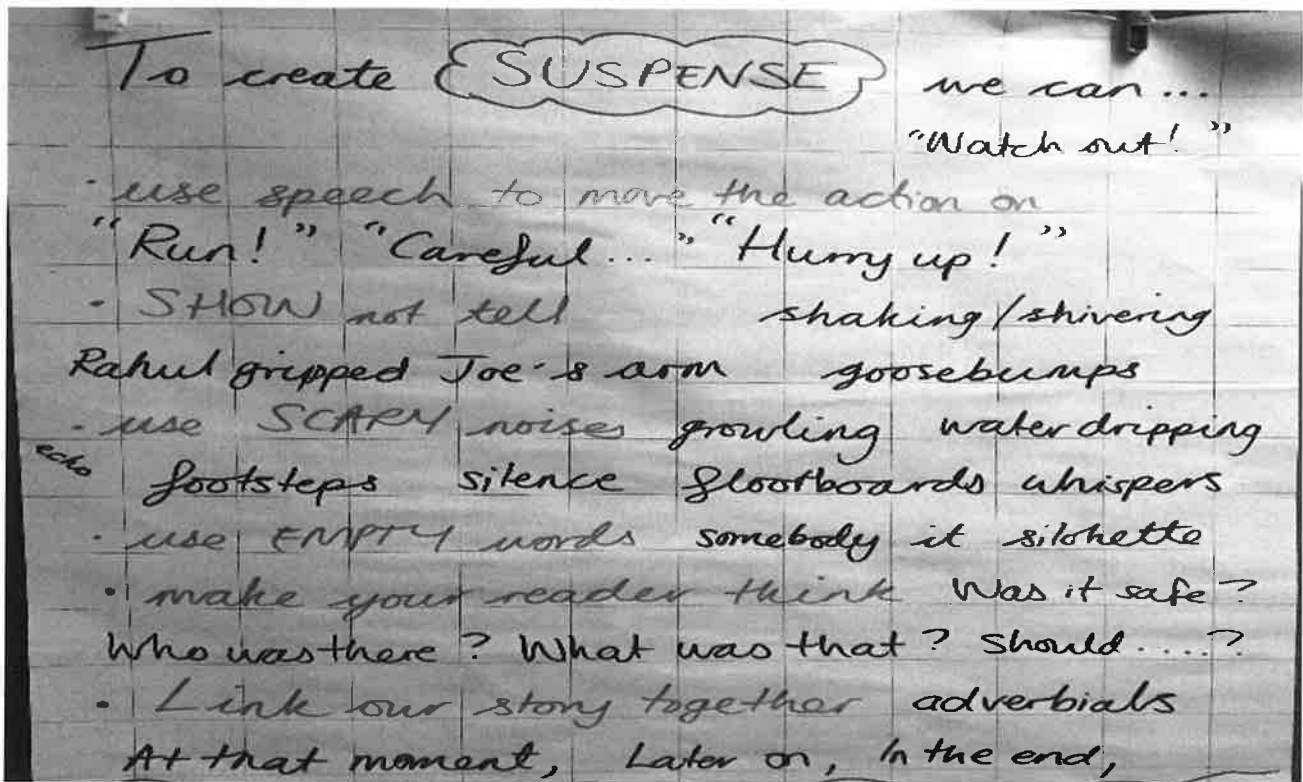 To create SUSPENSE we can...
"Watch out!"
· use speech to move the action on
"Run!" "Careful..." "Hurry up!"
· SHOW not tell shaking/shivering
Rahul gripped Joe's arm goosebumps
· use SCARY noises growling water dripping
echo footsteps silence floorboards whispers
· use EMPTY words somebody it silohette
· make your reader think Was it safe?
Who was there? What was that? Should....?
· Link our story together adverbials
At that moment, Later on, In the end,